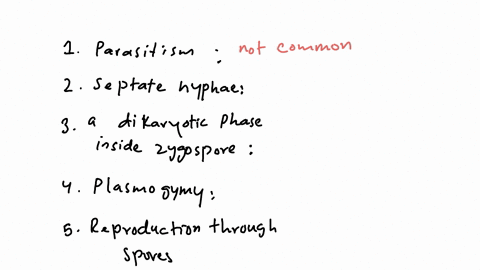 1. Parasitism : not common
2. Septate hyphae:
3. a dikaryotic Phase
inside zygospore :
4. Plasmogymy:
5. Reproduction through
spores